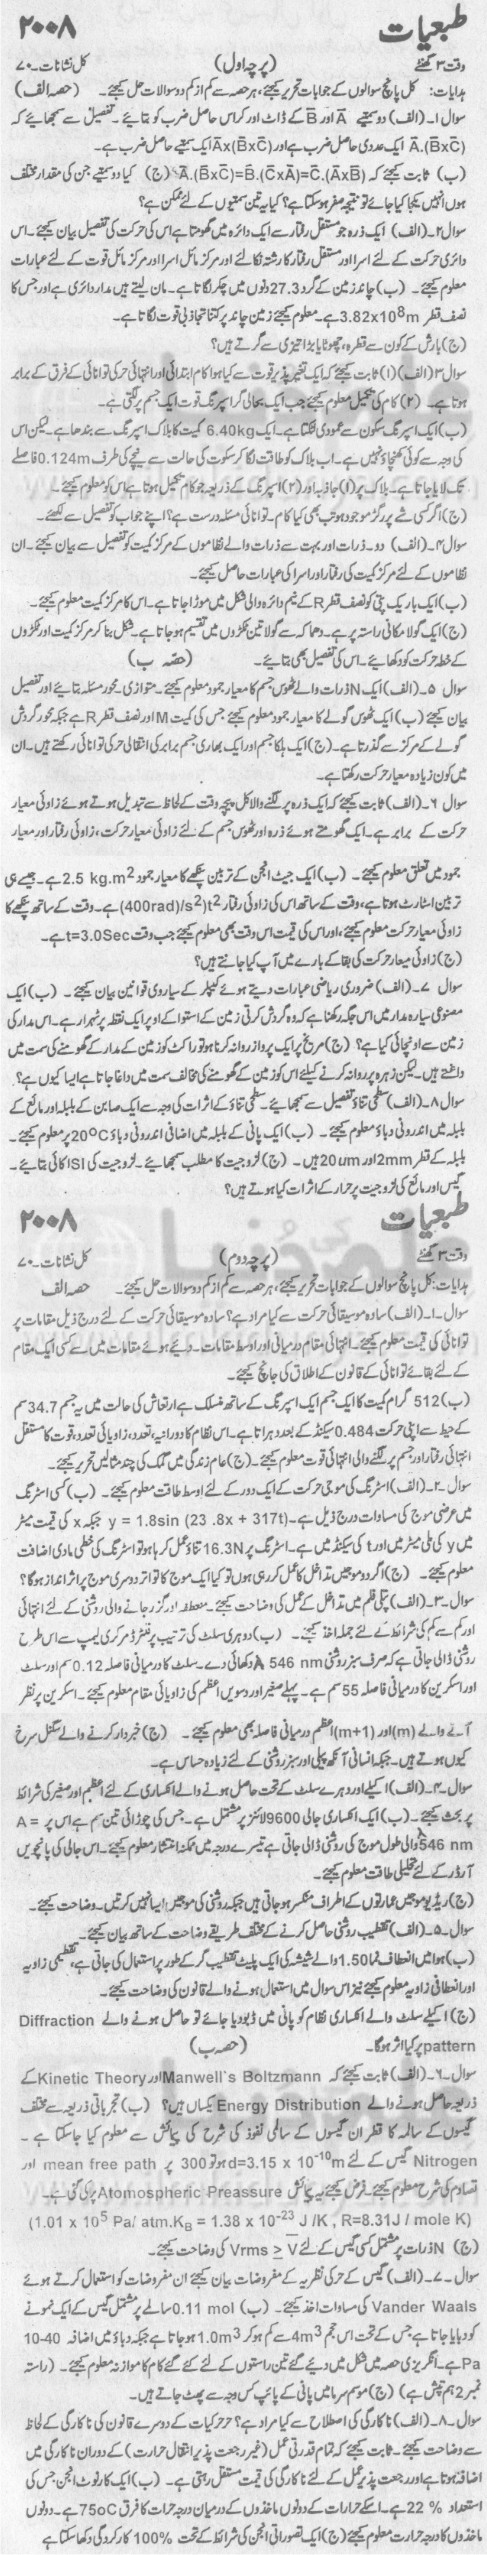 طبعیات ۲۰۰۸
وقت ۳ گھنٹے (پرچہ اول) کل نشانات۔۷۰
ہدایات: کل پانچ سوالوں کے جوابات تحریر کیجئے، ہر حصہ سے کم از کم دو سوالات حل کیجئے۔ (حصہ الف)
سوال۱۔ (الف) دو سمتیے Ā اور B̄ کے ڈاٹ اور کراس حاصل ضرب کو بتائیے۔ تفصیل سے سمجھائیے کہ
Ā.(B̄xC̄) ایک عددی حاصل ضرب ہے اور Āx(B̄xC̄) ایک سمتیے حاصل ضرب ہے۔
(ب) ثابت کیجئے کہ Ā.(B̄xC̄)=B̄.(C̄xĀ)=C̄.(ĀxB̄) (ج) کیا دو سمتیے جن کی مقدار مختلف
ہوں انہیں یکجا کیا جائے تو نتیجہ صفر ہوسکتا ہے؟ کیا یہ تین سمتیوں کے لئے ممکن ہے؟
سوال۲۔ (الف) ایک ذرہ جو مستقل رفتار سے ایک دائرہ میں گھومتا ہے اس کی حرکت کی تفصیل بیان کیجئے۔ اس
دائری حرکت کے لئے اسراع اور مستقل رفتار کا رشتہ نکالئے اور مرکز مائل اسراع اور مرکز مائل قوت کے لئے عبارات
معلوم کیجئے۔ (ب) چاند زمین کے گرد 27.3 دنوں میں چکر لگاتا ہے۔ مان لیتے ہیں مدار دائری ہے اور جس کا
نصف قطر 3.82x10⁸m ہے۔ معلوم کیجئے زمین چاند پر کتنا تجاذبی قوت لگاتا ہے۔
(ج) بارش کے کون سے قطرہ، چھوٹا یا بڑا تیزی سے گرتے ہیں؟
سوال۳ (الف) (۱) ثابت کیجئے کہ ایک تغیر پذیر قوت سے کیا ہوا کام ابتدائی اور انتہائی حرکی توانائی کے فرق کے برابر
ہوتا ہے۔ (۲) کام کی تکمیل معلوم کیجئے جب ایک بحالی گر اسپرنگ قوت ایک جسم پر لگتی ہے۔
(ب) ایک اسپرنگ سکون سے عمودی لٹکتا ہے۔ ایک 6.40kg کمیت کا بلاک اسپرنگ سے بندھا ہے۔ لیکن اس
کی وجہ سے کوئی کھنچاؤ نہیں ہے۔ اب بلاک کو طاقت لگا کر سکوت کی حالت سے نیچے کی طرف 0.124m فاصلے
تک لایا جاتا ہے۔ بلاک پر (۱) جاذبہ اور (۲) اسپرنگ کے ذریعہ جو کام تکمیل ہوتا ہے اس کو معلوم کیجئے۔
(ج) اگر کسی شے پر رگڑ موجود ہو تب بھی کیا کام۔ توانائی مسئلہ درست ہے؟ اپنے جواب کو تفصیل سے لکھئے۔
سوال۴۔ (الف) دو۔ ذرات اور بہت سے ذرات والے نظاموں کے مرکز کمیت کو تفصیل سے بیان کیجئے۔ ان
نظاموں کے لئے مرکز کمیت کی رفتار اور اسراع کی عبارات حاصل کیجئے۔
(ب) ایک باریک پتی کو نصف قطر R کے نیم دائرہ والی شکل میں موڑا جاتا ہے۔ اس کا مرکز کمیت معلوم کیجئے۔
(ج) ایک گولا مکانی راستہ پر ہے۔ دھماکہ سے گولا تین ٹکڑوں میں تقسیم ہوجاتا ہے۔ شکل بنا کر مرکز کمیت اور ٹکڑوں
کے خط حرکت کو دکھائیے۔ اس کی تفصیل بھی بتائیے۔ (حصہ ب)
سوال ۵۔ (الف) ایک N ذرات والے ٹھوس جسم کا معیار جمود معلوم کیجئے۔ متوازی۔ محور مسئلہ بتائیے اور تفصیل
بیان کیجئے (ب) ایک ٹھوس گولے کا معیار جمود معلوم کیجئے جس کی کمیت M اور نصف قطر R ہے جبکہ محور گردش
گولے کے مرکز سے گذرتا ہے۔ (ج) ایک ہلکا جسم اور ایک بھاری جسم برابر کی انتقالی حرکی توانائی رکھتے ہیں۔ ان
میں کون زیادہ معیار حرکت رکھتا ہے۔
سوال ۶۔ (الف) ثابت کیجئے کہ ایک ذرہ پر لگنے والا کل پیچہ وقت کے لحاظ سے تبدیل ہوتے ہوئے زاوئی معیار
حرکت کے برابر ہے۔ ایک گھومتے ہوئے ذرہ اور ٹھوس جسم کے لئے زاوئی معیار حرکت، زاوئی رفتار اور معیار
جمود میں تعلق معلوم کیجئے۔ (ب) ایک جیٹ انجن کے ٹربین پنکھے کا معیار جمود 2.5 kg.m² ہے۔ جیسے ہی
ٹربین اسٹارٹ ہوتا ہے، وقت کے ساتھ اس کی زاوئی رفتار (400rad)/s²)t² ہے۔ وقت کے ساتھ پنکھے کا
زاوئی معیار حرکت معلوم کیجئے، اور اس کی قیمت اس وقت بھی معلوم کیجئے جب وقت t=3.0Sec ہے۔
(ج) زاوئی معیار حرکت کی بقا کے بارے میں آپ کیا جانتے ہیں؟
سوال ۷۔ (الف) ضروری ریاضی عبارات دیتے ہوئے کیپلر کے سیاروی قوانین بیان کیجئے۔ (ب) ایک
مصنوعی سیارہ مدار میں اس جگہ رکھنا ہے کہ وہ گردش کرتی زمین کے استوا کے اوپر ایک نقطہ پر ٹہرا رہے۔ اس مدار کی
زمین سے اونچائی کیا ہے؟ (ج) مریخ پر ایک پرواز روانہ کرنا ہو تو راکٹ کو زمین کے مدار کے گھومنے کی سمت میں
داغتے ہیں۔ لیکن زہرہ پر روانہ کرنے کیلئے اس کو زمین کے گھومنے کی مخالف سمت میں داغا جاتا ہے ایسا کیوں ہے؟
سوال۸۔ (الف) سطحی تناؤ تفصیل سے سمجھائیے۔ سطحی تناؤ کے اثرات کی وجہ سے ایک صابن کے بلبلہ اور مائع کے
بلبلہ میں اندرونی دباؤ معلوم کیجئے۔ (ب) ایک پانی کے بلبلہ میں اضافی اندرونی دباؤ 20ºC پر معلوم کیجئے۔
بلبلہ کے قطر 2mm اور 20um ہیں۔ (ج) لزوجیت کا مطلب سمجھائیے۔ لزوجیت کی SI اکائی بتائیے۔
گیس اور مائع کی لزوجیت پر حرار کے اثرات کیا ہوتے ہیں؟
طبعیات ۲۰۰۸
وقت ۳ گھنٹے (پرچہ دوم) کل نشانات۔۷۰
ہدایات: کل پانچ سوالوں کے جوابات تحریر کیجئے، ہر حصہ سے کم از کم دو سوالات حل کیجئے۔ حصہ الف
سوال۔۱۔ (الف) سادہ موسیقائی حرکت سے کیا مراد ہے؟ سادہ موسیقائی حرکت کے لئے درج ذیل مقامات پر
توانائی کی قیمت معلوم کیجئے۔ انتہائی مقام درمیانی اور اوسط مقامات۔ دیئے ہوئے مقامات میں سے کسی ایک مقام
کے لئے بقائے توانائی کے قانون کے اطلاق کی جانچ کیجئے۔
(ب) 512 گرام کمیت کا ایک جسم ایک اسپرنگ کے ساتھ منسلک ہے ارتعاش کی حالت میں یہ جسم 34.7 سم
کے حیطہ سے اپنی حرکت 0.484 سیکنڈ کے بعد دہراتا ہے۔ اس نظام کا دورانیہ، تعدد، زاویائی تعدد، قوت کا مستقل
انتہائی رفتار اور جسم پر لگنے والی انتہائی قوت معلوم کیجئے۔ (ج) عام زندگی میں گمک کی چند مثالیں تحریر کیجئے۔
سوال ۔۲۔ (الف) اسٹرنگ کی موجی حرکت کے ایک دور کے لئے اوسط طاقت معلوم کیجئے۔ (ب) کسی اسٹرنگ
میں عرضی موج کی مساوات درج ذیل ہے۔ y = 1.8sin (23 .8x + 317t) جبکہ x کی قیمت میٹر
میں y کی ملی میٹر میں اور t کی سیکنڈ میں ہے۔ اسٹرنگ پر 16.3N تناؤ عمل کر رہا ہو تو اسٹرنگ کی خطی مادی اضافت
معلوم کیجئے۔ (ج) اگر دو موجیں تداخل کا عمل کر رہی ہوں تو کیا ایک موج کا تواتر دوسری موج پر اثر انداز ہوگا؟
سوال ۔۳۔ (الف) پتلی فلم میں تداخل کے عمل کی وضاحت کیجئے۔ منعطفہ اور گزر جانے والی روشنی کے لئے انتہائی
اور کم سے کم کی شرائط کے لئے جملہ اخذ کیجئے۔ (ب) دوہری سلٹ کی ترتیب پر فلٹرڈ مرکری لیمپ سے اس طرح
روشنی ڈالی جاتی ہے کہ صرف سبز روشنی 546 nm دکھائی دے۔ سلٹ کا درمیانی فاصلہ 0.12 سم اور سلٹ
اور اسکرین کا درمیانی فاصلہ 55 سم ہے۔ پہلے صغیر اور دسویں اعظم کی زاویائی مقام معلوم کیجئے۔ اسکرین پر نظر
آنے والے (m) اور (m+1) اعظم درمیانی فاصلہ بھی معلوم کیجئے۔ (ج) خبردار کرنے والے سگنل سرخ
کیوں ہوتے ہیں۔ جبکہ انسانی آنکھ پیلی اور سبز روشنی کے لئے زیادہ حساس ہے۔
سوال ۔۴۔ (الف) اکیلے اور دہرے سلٹ کے تحت حاصل ہونے والے انکساری کے لئے اعظم اور صغیر کی شرائط
پر بحث کیجئے۔ (ب) ایک انکساری جالی 9600 لائنز پر مشتمل ہے۔ جس کی چوڑائی تین سم ہے اس پر = A
546 nm والی طول موج کی روشنی ڈالی جاتی ہے تیسرے درجہ میں ممکنہ انتشار معلوم کیجئے۔ اس جالی کی پانچویں
آرڈر کے لئے تحلیلی طاقت معلوم کیجئے۔
(ج) ریڈیو موجیں عمارتوں کے اطراف منکسر ہوجاتی ہیں جبکہ روشنی کی موجیں ایسا نہیں کرتیں۔ وضاحت کیجئے۔
سوال ۔۵۔ (الف) تقطیب روشنی حاصل کرنے کے مختلف طریقے وضاحت کے ساتھ بیان کیجئے۔
(ب) ہوا میں انعطاف نما 1.50 والے شیشہ کی ایک پلیٹ تقطیب گر کے طور پر استعمال کی جاتی ہے، تقطیبی زاویہ
اور انعطافی زاویہ معلوم کیجئے نیز اس سوال میں استعمال ہونے والے قانون کی وضاحت کیجئے۔
(ج) اکیلے سلٹ والے انکساری نظام کو پانی میں ڈبو دیا جائے تو حاصل ہونے والے Diffraction
pattern پر کیا اثر ہوگا۔ (حصہ ب)
سوال ۔۶۔ (الف) ثابت کیجئے کہ Manwell`s Boltzmann اور Kinetic Theory کے
ذریعہ حاصل ہونے والے Energy Distribution یکساں ہیں؟ (ب) تجرباتی ذریعہ سے مختلف
گیسوں کے سالمہ کا قطر ان گیسوں کے سالمی نفوذ کی شرح کی پیمائش سے معلوم کیا جا سکتا ہے۔
Nitrogen گیس کے لئے d=3.15 x 10⁻¹⁰m ہو تو 300 پر mean free path اور
تصادم کی شرح معلوم کیجئے۔ فرض کیجئے یہ پیمائش Atomospheric Preassure پر کی گئی ہے۔
(1.01 x 10⁵ Pa/ atm.K_B = 1.38 x 10⁻²³ J /K , R=8.31J / mole K)
(ج) N ذرات پر مشتمل کسی گیس کے لئے Vrms ≥ V̄ کی وضاحت کیجئے۔
سوال ۔۷۔ (الف) گیس کے حرکی نظریہ کے مفروضات بیان کیجئے ان مفروضات کو استعمال کرتے ہوئے
Vander Waals کی مساوات اخذ کیجئے۔ (ب) 0.11 mol سالمے پر مشتمل گیس کے ایک نمونے
کو دبایا جاتا ہے جس کے تحت اس حجم 4m³ سے کم ہو کر 1.0m³ ہوجاتا ہے جبکہ دباؤ میں اضافہ 10-40
Pa ہے۔ انگریزی حصہ میں شکل میں دیئے گئے تین راستوں کے لئے کئے گئے کام کا موازنہ معلوم کیجئے۔ (راستہ
نمبر 2 ہم تپش ہے) (ج) موسم سرما میں پانی کے پائپ کس وجہ سے پھٹ جاتے ہیں۔
سوال ۔۸۔ (الف) ناکارگی کی اصطلاح سے کیا مراد ہے؟ حرحرکیات کے دوسرے قانون کی ناکارگی کے لحاظ
سے وضاحت کیجئے۔ ثابت کیجئے کہ تمام قدرتی عمل (غیر رجعت پذیر انتقال حرارت) کے دوران ناکارگی میں
اضافہ ہوتا ہے اور رجعت پذیر عمل کے لئے ناکارگی کی قیمت مستقل رہتی ہے۔ (ب) ایک کارنوٹ انجن جس کی
استعداد 22 % ہے۔ اسکے حرارات کے دونوں ماخذوں کے درمیان درجہ حرات کا فرق 75oC ہے۔ دونوں
ماخذوں کا درجہ حرارت معلوم کیجئے (ج) ایک تصوراتی انجن کی شرائط کے تحت 100% کارکردگی دکھا سکتا ہے